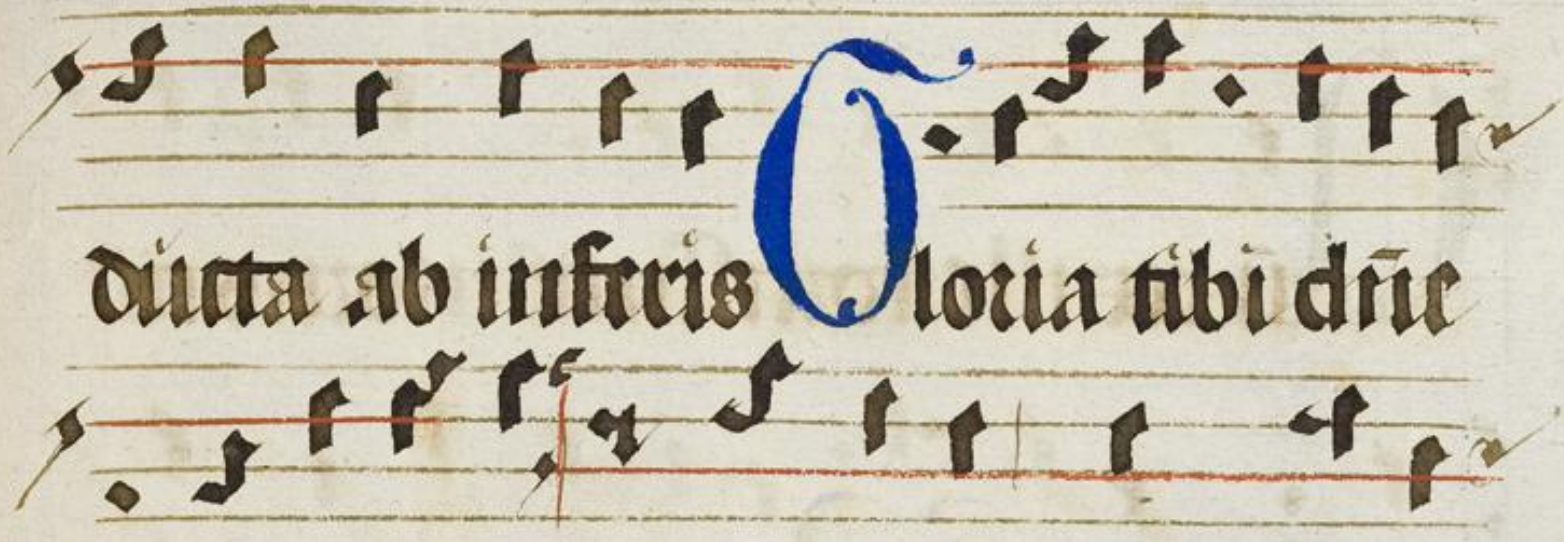 ducta ab inferis Gloria tibi dn̄e